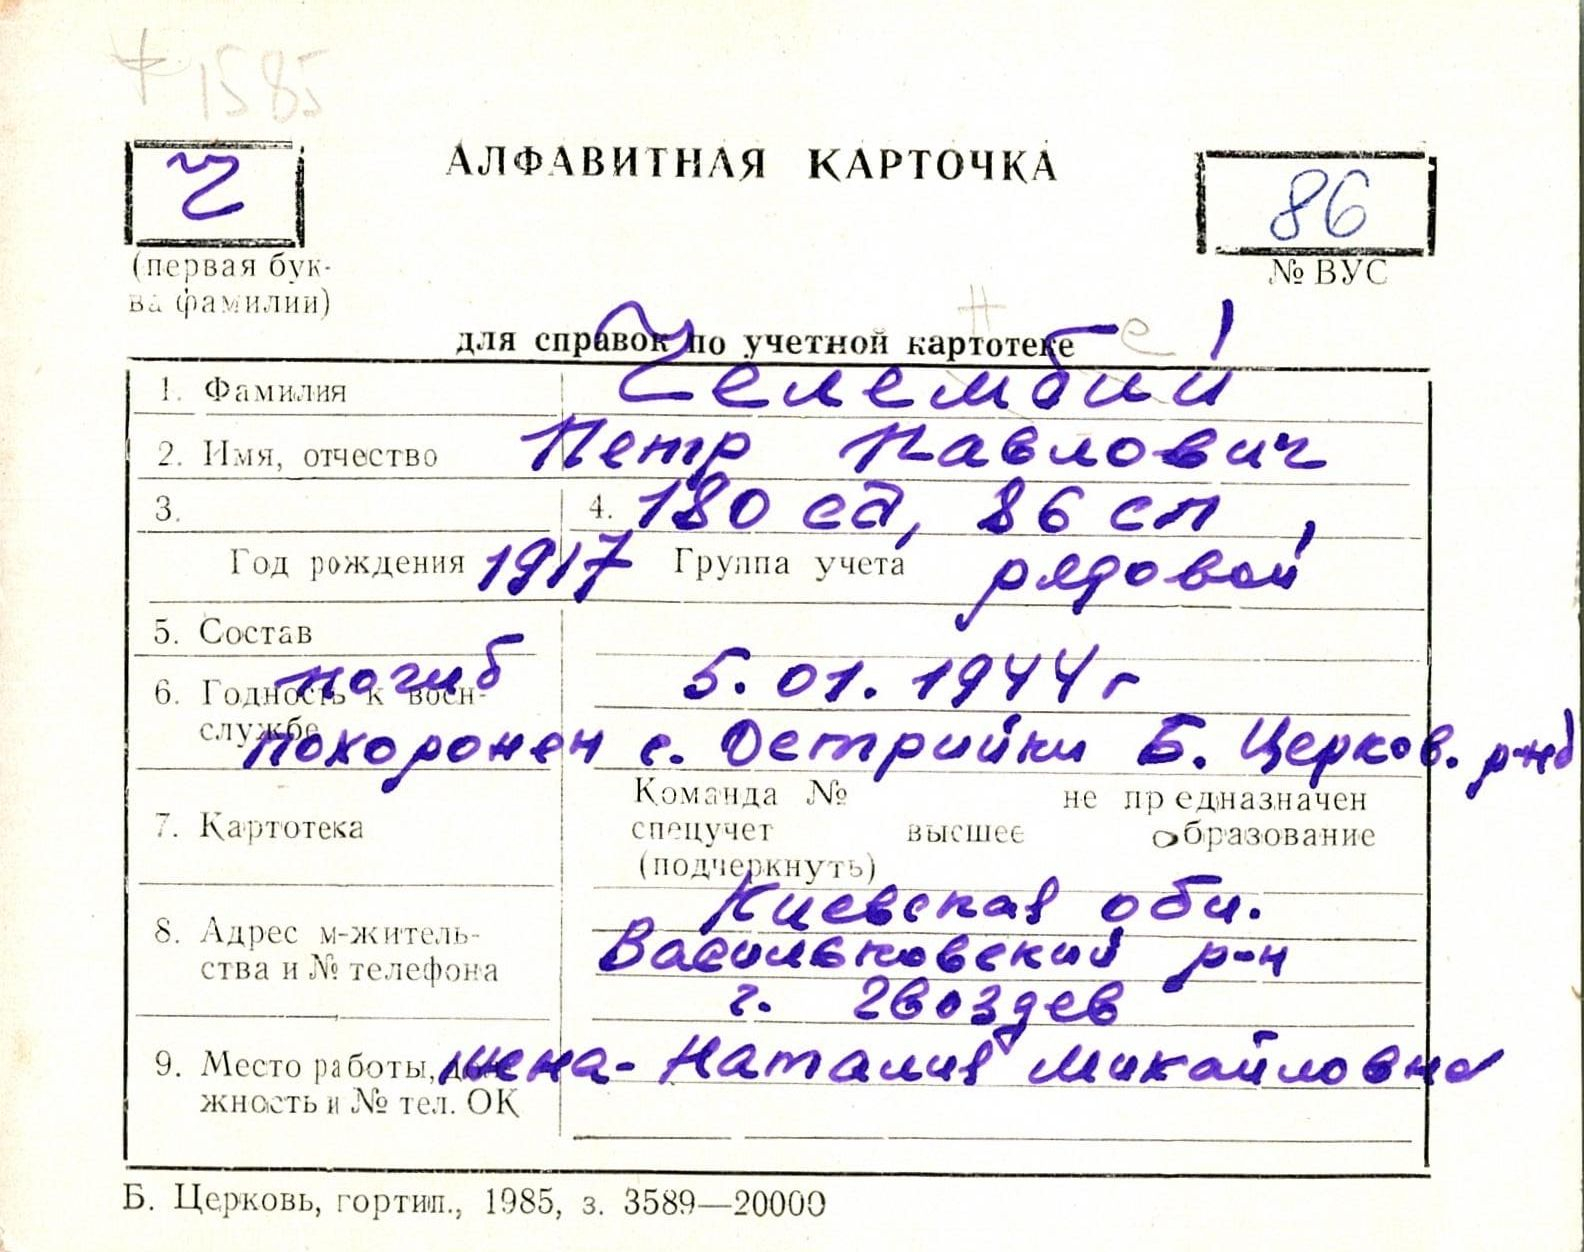 + 1585
Ч
АЛФАВИТНАЯ КАРТОЧКА
86
(первая бук-
ва фамилии)
№ ВУС
н е
для справок по учетной картотеке
1. Фамилия Челембий
2. Имя, отчество Петр Павлович
3. 4. 180 сд, 86 сп,
Год рождения 1917 Группа учета рядовой
5. Состав
погиб 5.01.1944 г
6. Годность к воен-
службе
похоронен с. Острийки Б. Церков. р-на
Команда № не предназначен
7. Картотека спецучет высшее образование
(подчеркнуть)
Киевская обл.
8. Адрес м-житель- Васильковский р-н
ства и № телефона
г. Гвоздев
9. Место работы, дол- жена - Наталия Михайловна
жность и № тел. ОК
Б. Церковь, гортип., 1985, з. 3589—20000